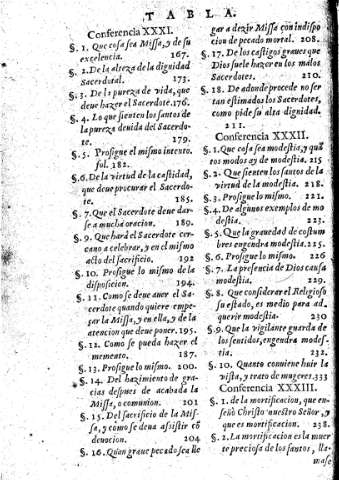 TABLA.
Conferencia XXXI.
§. 1. Que cosa sea Missa, y de su
excelencia. 167.
§. 2. De la alteza de la dignidad
Sacerdotal. 173.
§. 3. De la pureza de vida, que
deue hazer el Sacerdote. 176.
§. 4. Lo que sienten los santos de
la pureza deuida del Sacerdo-
te. 179.
§. 5. Prosigue el mismo intento.
fol. 182.
§. 6. De la virtud de la castidad,
que deue procurar el Sacerdo-
te. 185.
§. 7. Que el Sacerdote deue dar-
se a mucha oracion. 189.
§. 9. Que hará el Sacerdote cer-
cano a celebrar, y en el mismo
acto del sacrificio. 192
§. 10. Prosigue lo mismo de la
disposicion. 194.
§. 11. Como se deue auer el Sa-
cerdote quando quiere empe-
zar la Missa, y en ella, y de la
atencion que deue poner. 195.
§. 12. Como se pueda hazer el
memento. 187.
§. 13. Prosigue lo mismo. 200.
§. 14. Del hazimiento de gra-
cias despues de acabada la
Missa, o comunion. 201
§. 15. Del sacrificio de la Mis-
sa, y cómo se deua assistir có
deuocion. 204
§. 16. Quan graue pecado sea lle
gar a dezir Missa con indispo
cion de pecado mortal. 208.
§. 17. De los castigos graues que
Dios suele hazer en los malos
Sacerdotes. 210.
§. 18. De adonde procede no ser
tan estimados los Sacerdotes,
como pide su alta dignidad.
211.
Conferencia XXXII.
§. 1. Que cosa sea modestia, y quā
tos modos ay de modestia. 215
§. 2. Que sienten los santos de la
virtud de la modestia. 218.
§. 3. Prosigue lo mismo. 221.
§. 4. De algunos exemplos de mo
destia. 223.
§. 5. Que la grauedad de costum
bres engendra modestia. 225.
§. 6. Prosigue lo mismo. 226
§. 7. La presencia de Dios causa
modestia. 229.
§. 8. Que considerar el Religioso
su estado, es medio para ad-
querir modestia. 230
§. 9. Que la vigilante guarda de
los sentidos, engendra modes-
tia. 232.
§. 10. Quanto conuiene huir la
vista, y trato de mugeres. 333
Conferencia XXXIII.
§. 1. de la mortificacion, que en-
señó Christo nuestro Señor, y
que es mortificacion. 238.
§. 2. La mortificacion es la muer
te preciosa de los santos, lla-
mase